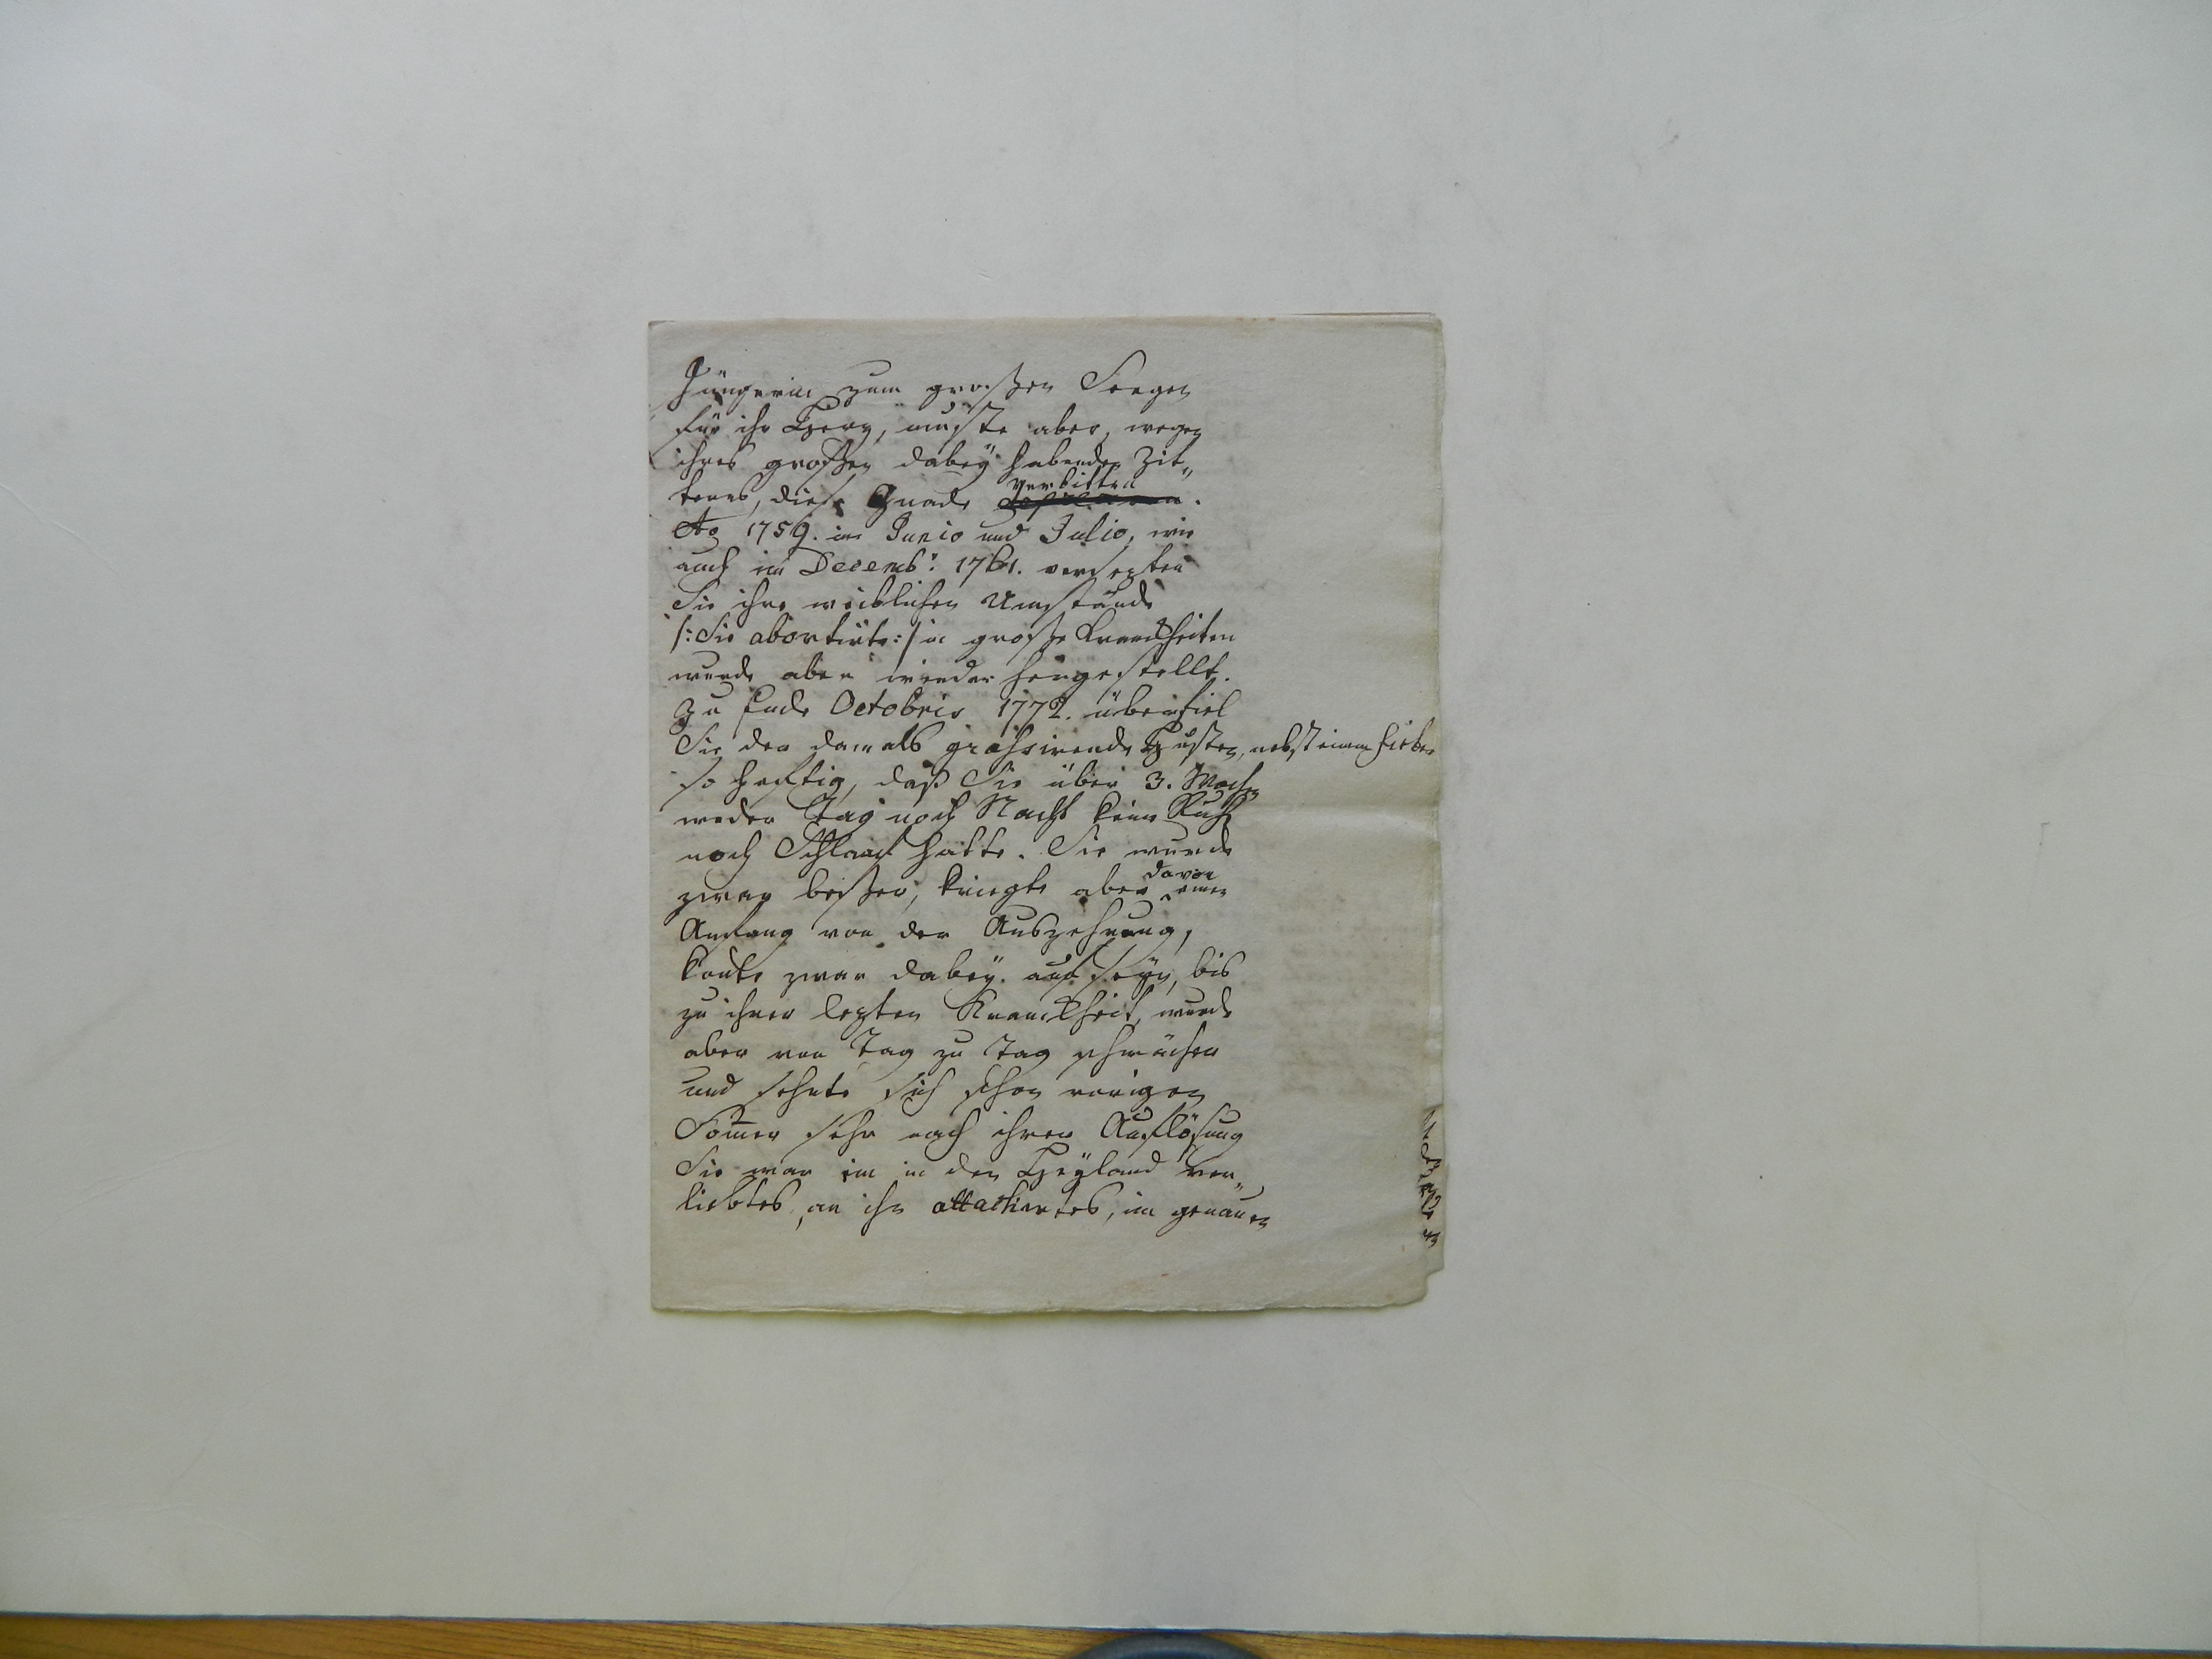 Jüngerin zum großen Seegen
für ihr Herz, mußte aber, wegen
ihres großen dabey habenden Zit„
terns, diese Gnade verbitten.
Ao 1759. im Junio und Julio, wie
auch im Decemb.r 1761. versezten
Sie ihre weiblichen Umstände
/: Sie abortirte :/ in große Kranckheiten
wurde aber wieder hergestellt.
Zu Ende Octobris 1772. überfiel
Sie der damals grassirende Husten, nebst einem Fieber
so heftig, daß Sie über 3. Wochen
weder Tag noch Nacht keine Ruh
noch Schlaf hatte. Sie wurde
zwar beßer, kriegte aber davon einen
Anfang von der Auszehrung,
konte zwar dabey auf seyn, bis
zu ihrer lezten Kranckheit, wurde
aber von Tag zu Tag schwächer
und sehnte sich schon vorigen
Som̄er sehr nach ihrer Auflösung
Sie war ein in den Heyland ver„
liebtes, an ihn attachirtes, im genauen